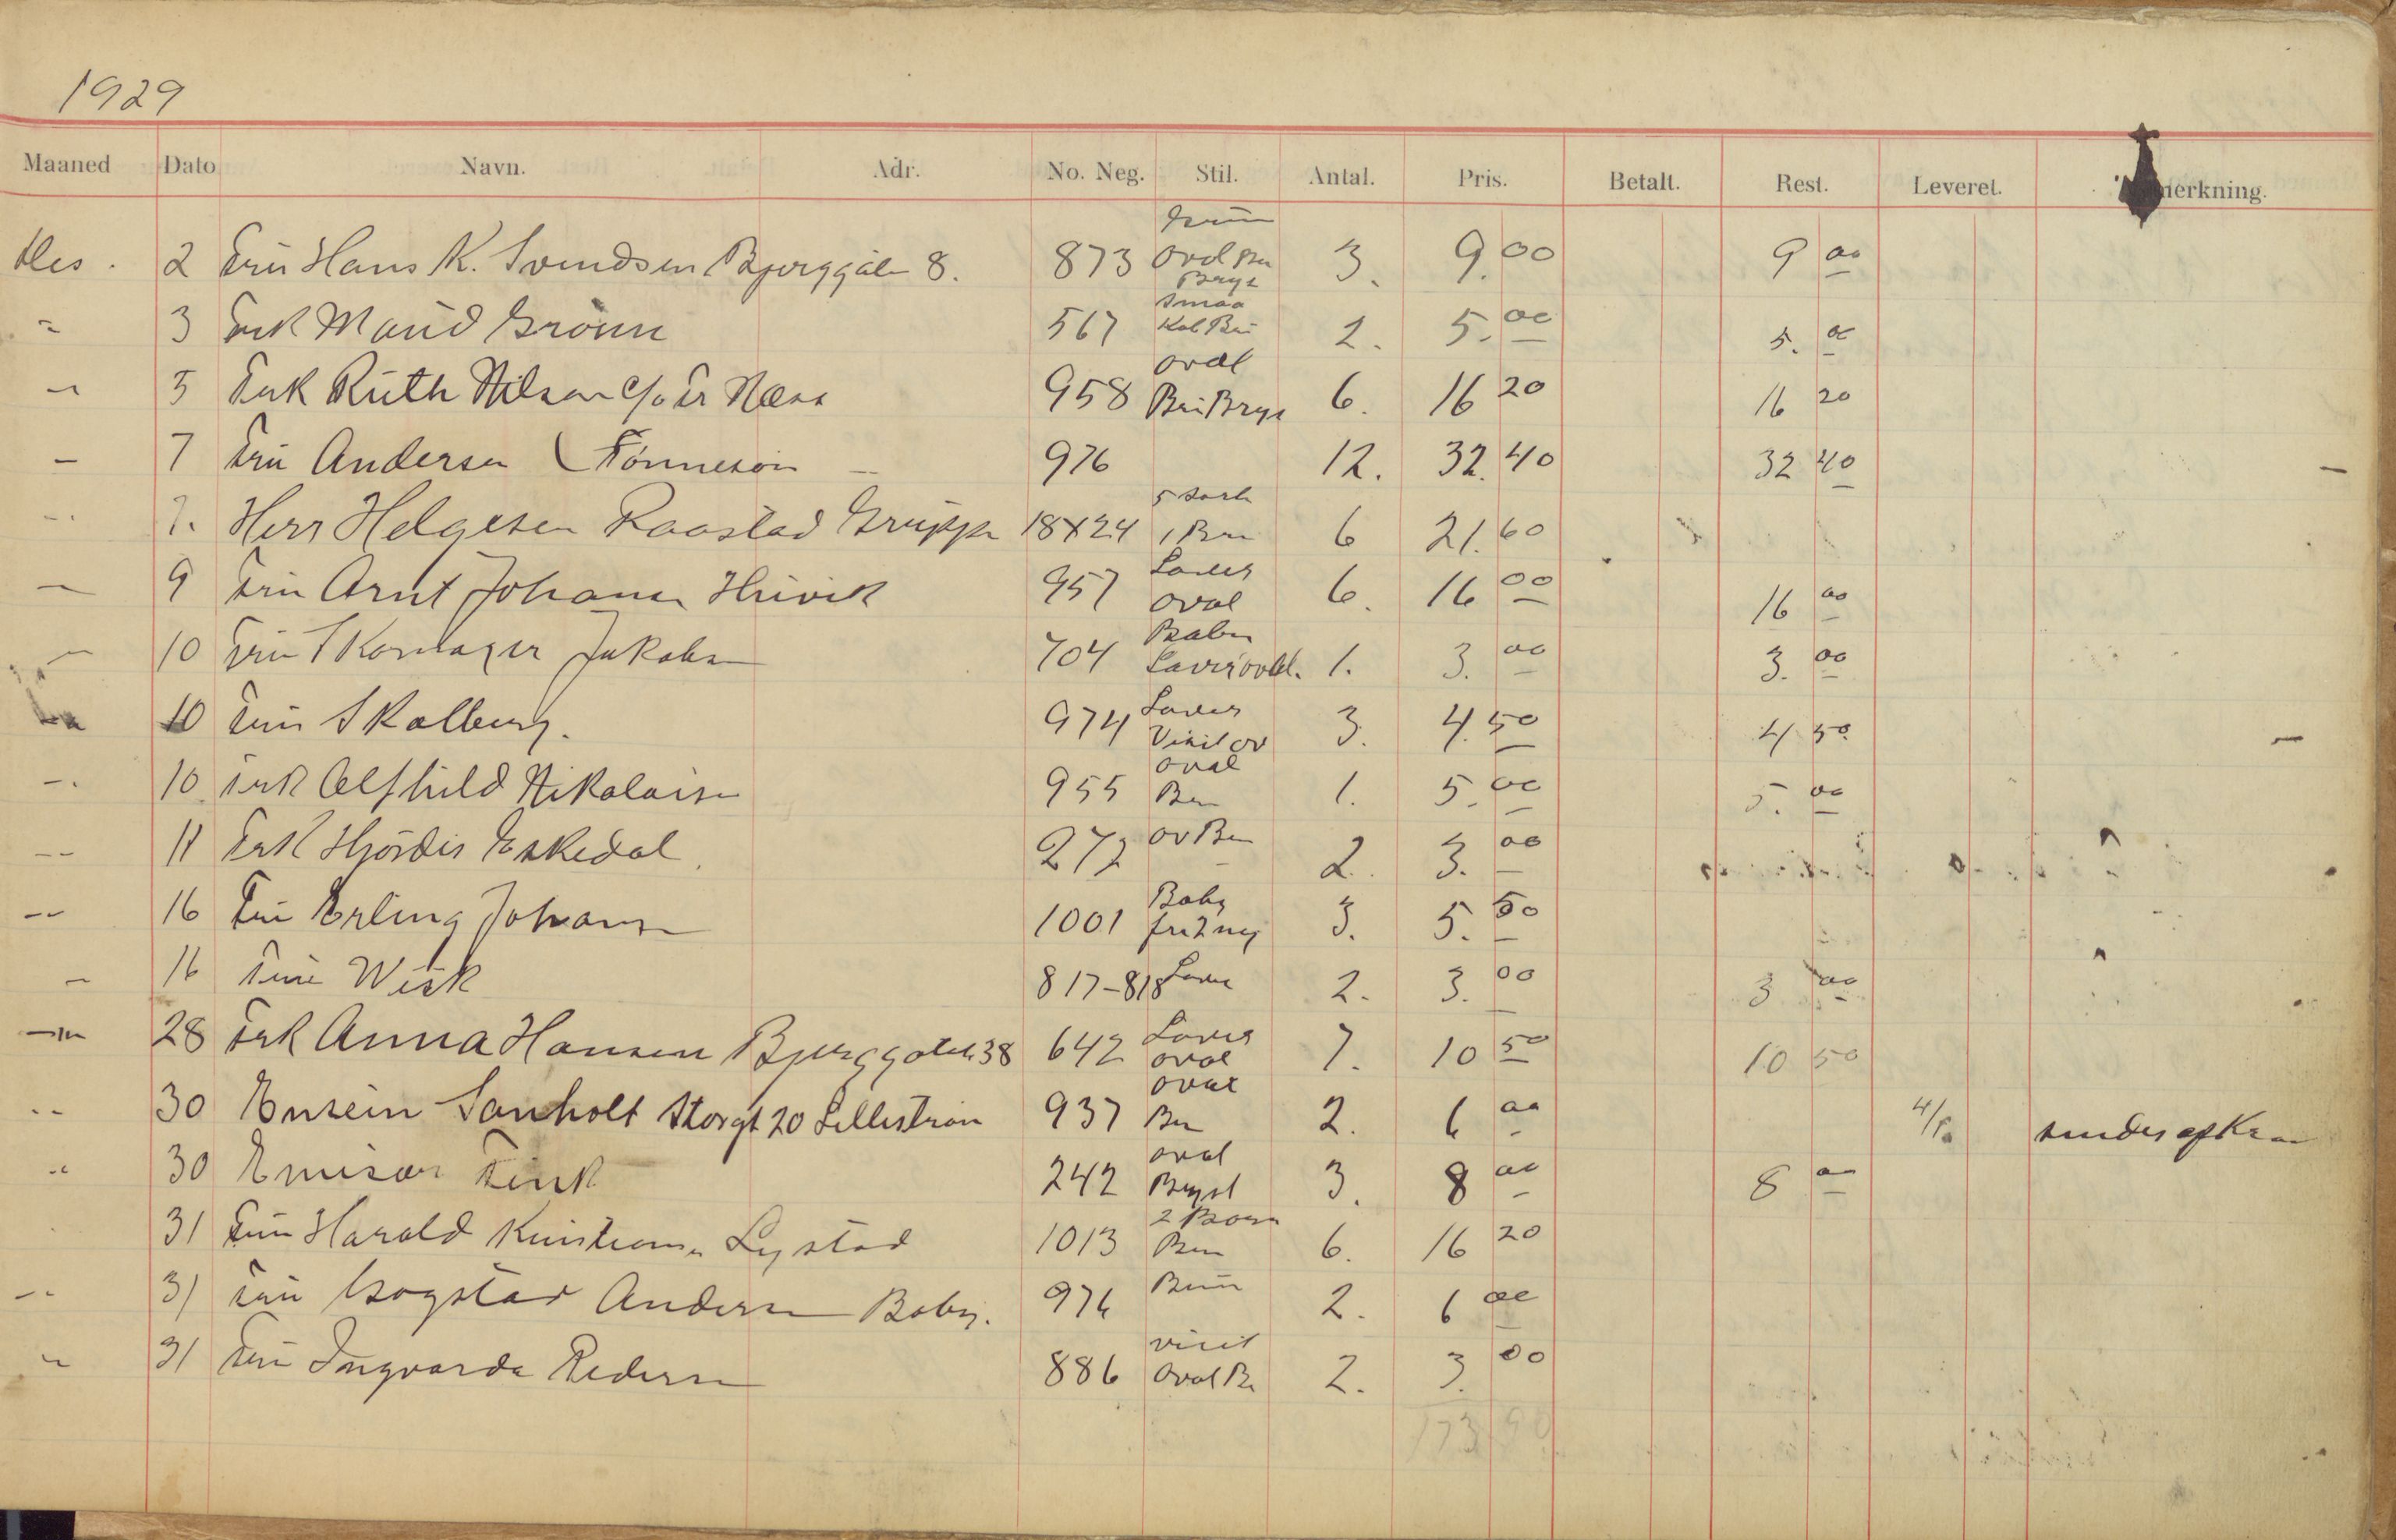 1929
Maaned Dato Navn. Adr. No. Neg. Stil. Antal. Pris. Betalt. Rest. Leveret. merkning.
Des. 2 Fru Hans K. Svendsen Bjerggate 8. 873 Oval Bru Bryst 3. 9.00 9 00
" 3 Frk Maud Grönn 567 smaa Kab Bru 2. 5.00 5.00
" 5 Frk Ruth Nilsen c/o Fr Næss 958 oval Bru Bryst 6. 16 20 16 20
" 7 Fru Andersen Tönneson 976 12. 32.40 32 40
" 7. Herr Helgesen Raastad Gruppe 18X24 5 sort 1 Bru 6 21.60
" 9 Fru Arnt Johansen Huvik 957 Laver oval 6. 16 00 16 00
" 10 Fru Skomager Jakobsen 704 Laver oval. 1. 3. 00 3. 00
10 Fru Skalberg. 974 Laver Visit ov 3. 4.50 4 50
" 10 Frk Alfhild Nikolaisen 955 oval Bru 1. 5.00 5.00
" 11 Frk Hjördis Eskedal 272 ov Bru 2. 3.00
" 16 Fru Erling Johansen 1001 Baby fra 2 neg 3. 5.50
" 16 Fru Wisk 817-818 Laver 2. 3.00 3 00
" 28 Frk Anna Hansen Bjerggaten 38 642 Laver oval 7. 10 50 10 50
" 30 Sanholt Storgt 20 Lilleström 937 oval Bru 2. 6 00 4/1 sendes opkrav
" 30 Fink 242 oval Bryst 3. 8 00 8 00
31 Fru Harald Kristiansen Lystad 1013 2 Børn Bru 6. 16 20
" 31 Fru Bogstad Andersen Baby. 976 Brun 2. 6 00
" 31 Fru Ingvarda Pedersen 886 visit Oval Br 2. 3.00
173 90